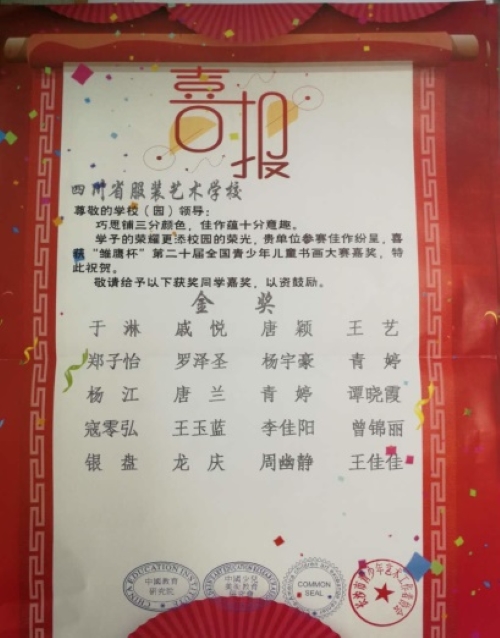 喜报
四川省服装艺术学校
尊敬的学校（园）领导：
巧思铺三分颜色，佳作蕴十分意趣。
学子的荣耀更添校园的荣光，贵单位参赛佳作纷呈，喜
获“雏鹰杯”第二十届全国青少年儿童书画大赛嘉奖，特
此祝贺。
敬请给予以下获奖同学嘉奖，以资鼓励。
金 奖
于 淋 戚 悦 唐 颖 王 艺
郑子怡 罗泽圣 杨宇豪 青 婷
杨 江 唐 兰 青 婷 谭晓霞
寇零弘 王玉蓝 李佳阳 曾锦丽
银 盘 龙 庆 周幽静 王佳佳
CHINA EDUCATION INSTITUTE
中國教育
研究院
中國少兒
美術教育
COMMON
SEAL